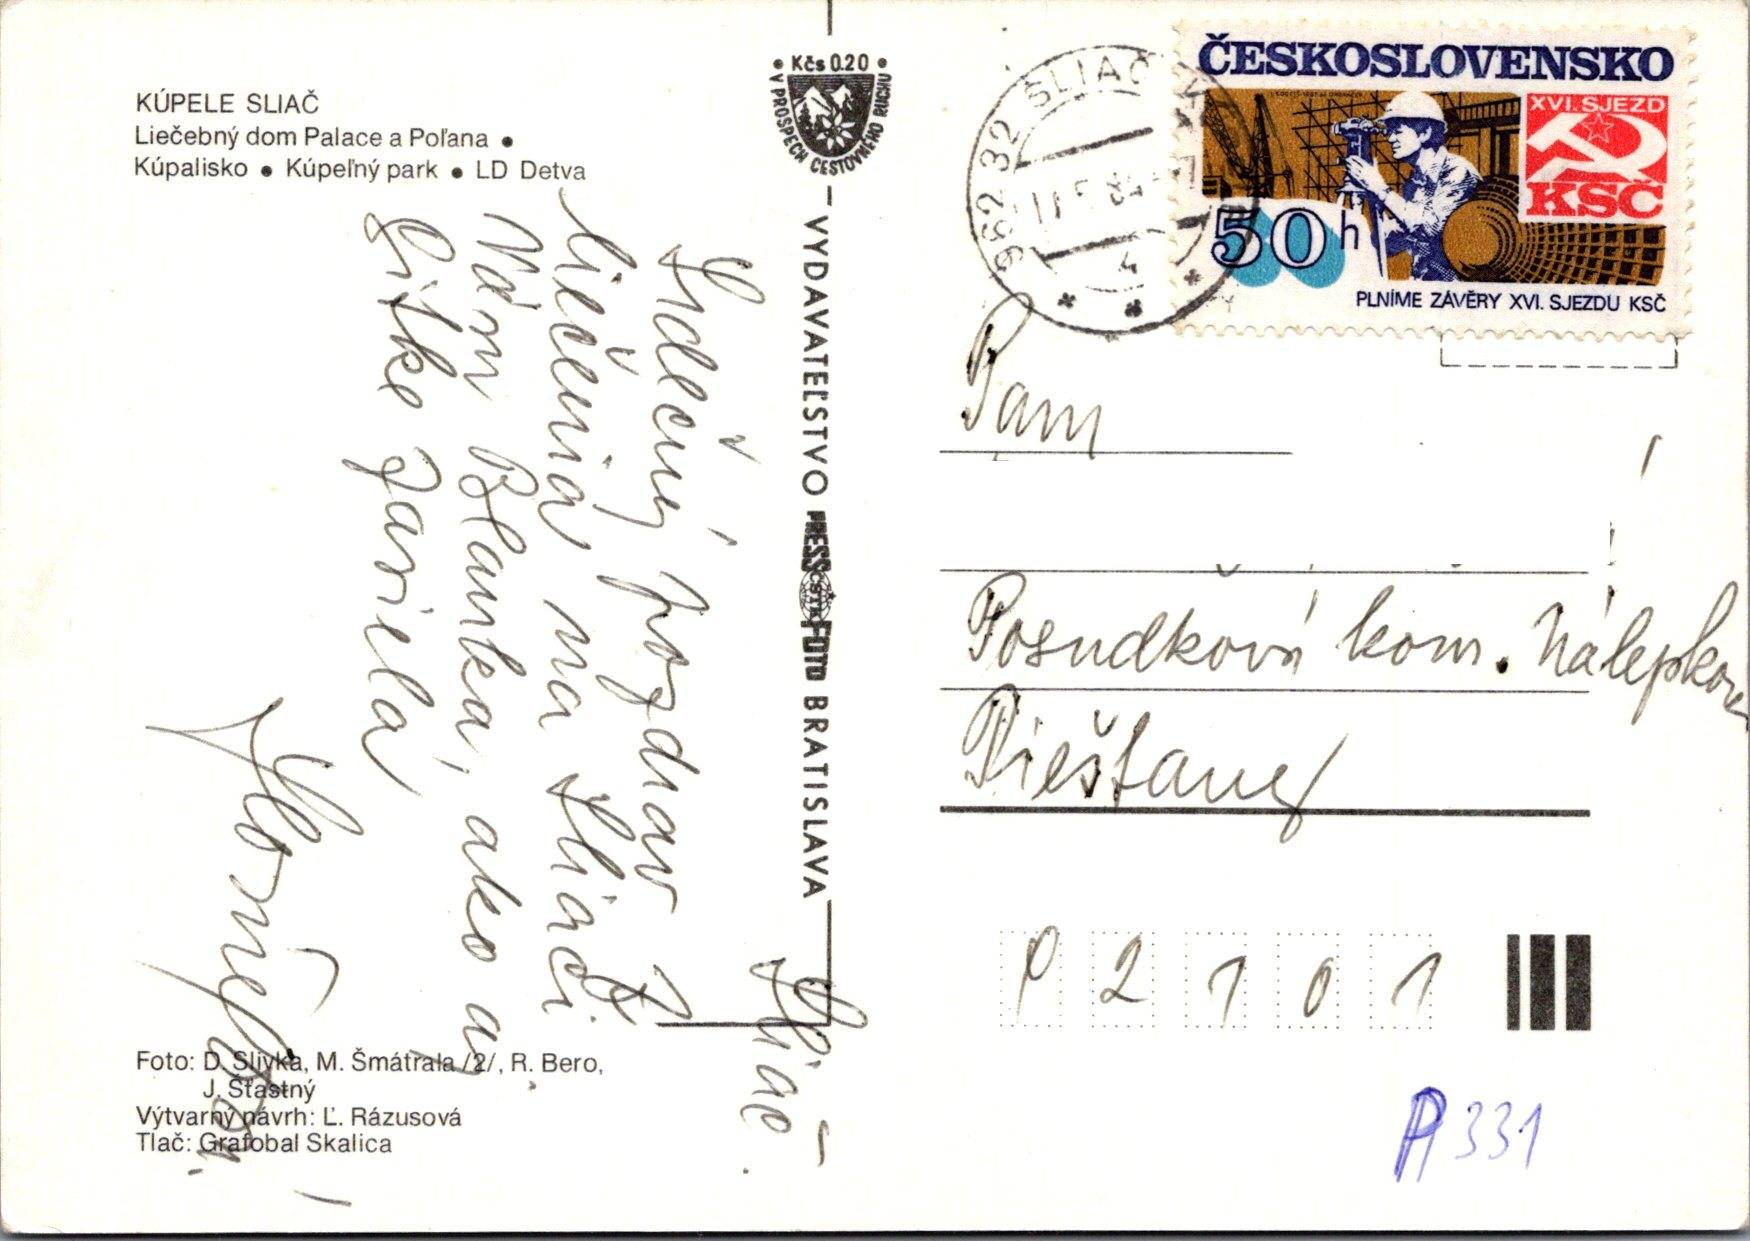 KÚPELE SLIAČ
Liečebný dom Palace a Poľana •
Kúpalisko • Kúpeľný park • LD Detva
Sliač
Srdečný pozdrav z
liečenia na Sliači
Vám Blanka, ako aj
Gitke zasiela
Foto: D. Slivka, M. Šmátrala /2/, R. Bero,
J. Šťastný
Výtvarný návrh: Ľ. Rázusová
Tlač: Grafobal Skalica
• Kčs 0.20 •
V PROSPECH CESTOVNÉHO RUCHU
VYDAVATEĽSTVO PRESSFOTO BRATISLAVA
ČSTK
962 32 SLIAČ
11.5.84
4
ČESKOSLOVENSKO
XVI. SJEZD
KSČ
50 h
PLNÍME ZÁVĚRY XVI. SJEZDU KSČ
Pani
Posudková kom. Nálepkova
Piešťany
P 2 1 0 1
P 331